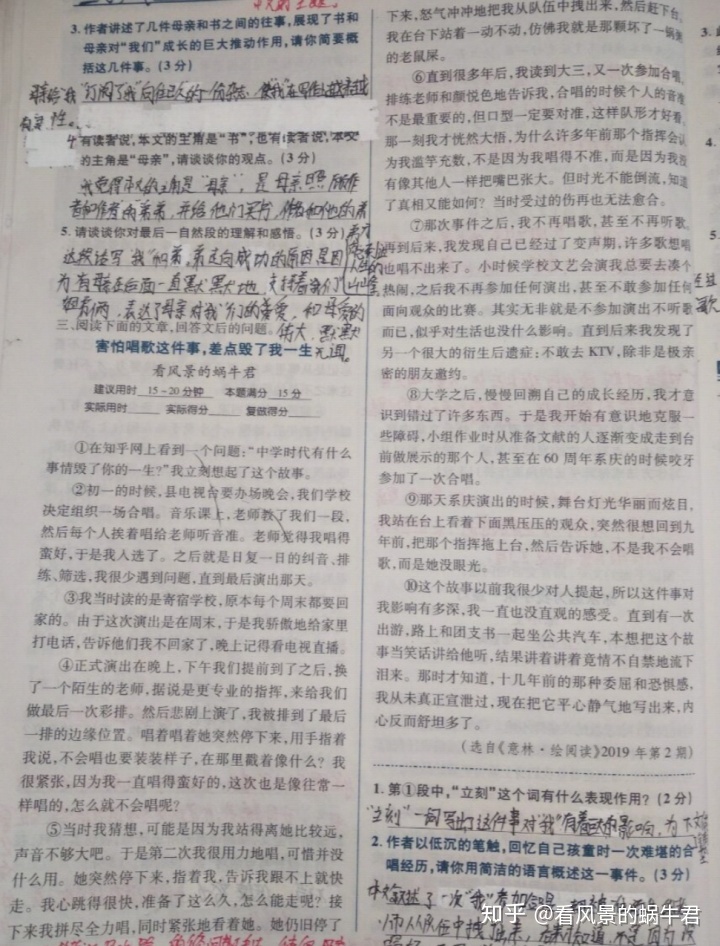 3. 作者讲述了几件母亲和书之间的往事,展现了书和
母亲对“我们”成长的巨大推动作用,请你简要概
括这几件事。(3 分)
有读者说,本文的主角是“书”,也有读者说,本文
的主角是“母亲”,请谈谈你的观点。(3 分)
我觉得本文的主角是“母亲”,是母亲照顾作
5. 请谈谈你对最后一自然段的理解和感悟。(3 分)
三、阅读下面的文章,回答文后的问题。
害怕唱歌这件事,差点毁了我一生
看风景的蜗牛君
建议用时 15-20分钟 本题满分 15分
实际用时 实际得分 复做得分
①在知乎网上看到一个问题:“中学时代有什么
事情毁了你的一生?”我立刻想起了这个故事。
②初一的时候,县电视台要办场晚会,我们学校
决定组织一场合唱。音乐课上,老师教了我们一段,
然后每个人挨着唱给老师听音准。老师觉得我唱得
蛮好,于是我入选了。之后就是日复一日的纠音、排
练、筛选,我很少遇到问题,直到最后演出那天。
③我当时读的是寄宿学校,原本每个周末都要回
家的。由于这次演出是在周末,于是我骄傲地给家里
打电话,告诉他们我不回家了,晚上记得看电视直播。
④正式演出在晚上,下午我们提前到了之后,换
了一个陌生的老师,据说是更专业的指挥,来给我们
做最后一次彩排。然后悲剧上演了,我被排到了最后
一排的边缘位置。唱着唱着她突然停下来,用手指着
我说,不会唱也要装装样子,在那里戳着像什么?我
很紧张,因为我一直唱得蛮好的,这次也是像往常一
样唱的,怎么就不会唱呢?
⑤当时我猜想,可能是因为我站得离她比较远,
声音不够大吧。于是第二次我很用力地唱,可惜并没
什么用。她突然停下来,指着我,告诉我跟不上就快
走。我心跳得很快,准备了这么久,怎么能走呢?接
下来我拼尽全力唱,同时紧张地看着她。她仍旧停了
下来,怒气冲冲地把我从队伍中拽出来,然后赶下台。
我在台下站着一动不动,仿佛我就是那颗坏了一锅粥
的老鼠屎。
⑥直到很多年后,我读到大三,又一次参加合唱。
排练老师和颜悦色地告诉我,合唱的时候个人的音准
不是最重要的,但口型一定要对准,这样队形才好看。
那一刻我才恍然大悟,为什么许多年前那个指挥会认
为我滥竽充数,不是因为我唱得不准,而是因为我没
有像其他人一样把嘴巴张大。但时光不能倒流,知道
了真相又能如何?当时受过的伤再也无法愈合。
⑦那次事件之后,我不再唱歌,甚至不再听歌。
再到后来,我发现自己已经过了变声期,许多歌想唱
也唱不出来了。小时候学校文艺会演我总要去凑个
热闹,之后我不再参加任何演出,甚至不敢参加任何
面向观众的比赛。其实无非就是不参加演出不听歌
而已,似乎对生活也没什么影响。直到后来我发现了
另一个很大的衍生后遗症:不敢去 KTV,除非是极亲
密的朋友邀约。
⑧大学之后,慢慢回溯自己的成长经历,我才意
识到错过了许多东西。于是我开始有意识地克服一
些障碍,小组作业时从准备文献的人逐渐变成走到台
前做展示的那个人,甚至在 60 周年系庆的时候咬牙
参加了一次合唱。
⑨那天系庆演出的时候,舞台灯光华丽而炫目,
我站在台上看着下面黑压压的观众,突然很想回到九
年前,把那个指挥拖上台,然后告诉她,不是我不会唱
歌,而是她没眼光。
⑩这个故事以前我很少对人提起,所以这件事对
我影响有多深,我一直也没直观的感受。直到有一次
出游,路上和团支书一起坐公共汽车,本想把这个故
事当笑话讲给他听,结果讲着讲着竟情不自禁地流下
泪来。那时才知道,十几年前的那种委屈和恐惧感,
我从未真正宣泄过,现在把它平心静气地写出来,内
心反而舒坦多了。
(选自《意林·绘阅读》2019 年第 2 期)
1. 第①段中,“立刻”这个词有什么表现作用?(2 分)
“立刻”一词写出了这件事对“我”有着巨大的影响,为下
2. 作者以低沉的笔触,回忆自己孩童时一次难堪的合
唱经历,请你用简洁的语言概述这一事件。(3 分)
知乎 @看风景的蜗牛君